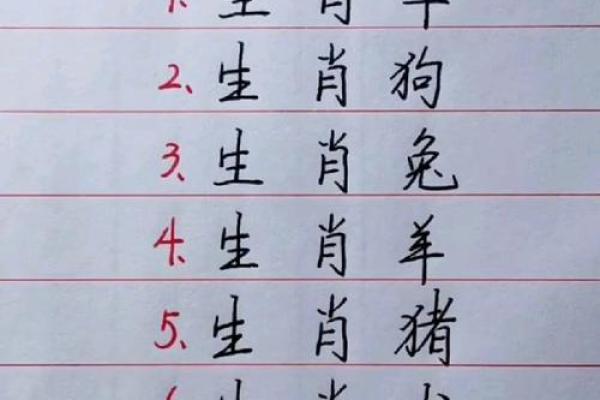 1、生肖
2、生肖狗
3、生肖兔
4、生肖羊
5、生肖猪
生肖